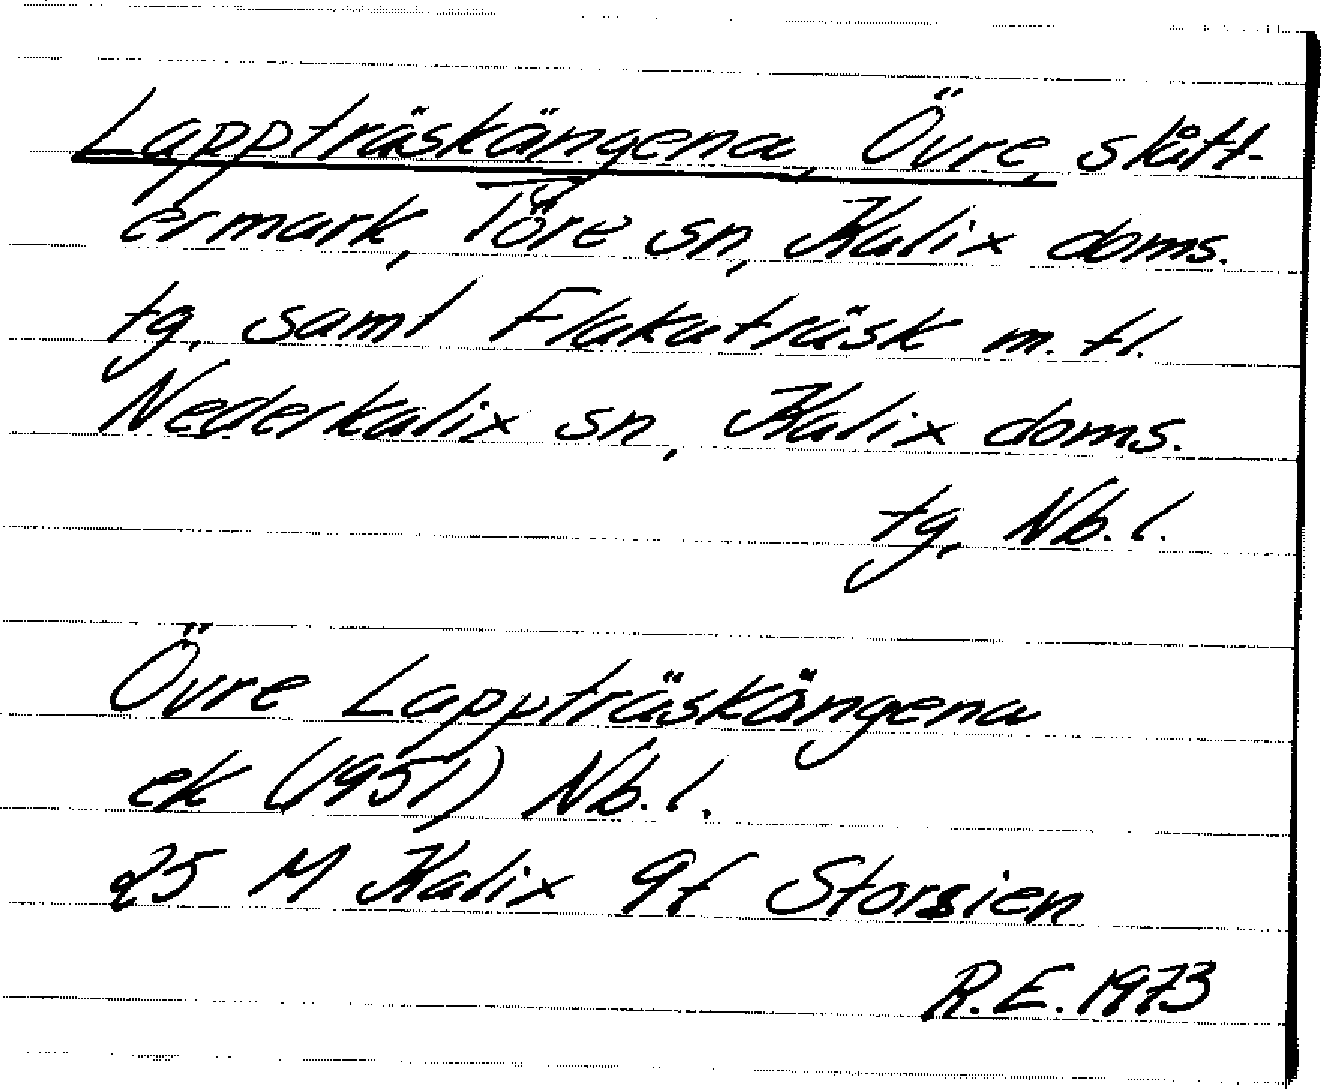 Lappträskängena, Övre, slått-
ermark, Töre sn, Kalix doms.
tg, samt Flakaträsk m. fl.
Nederkalix sn, Kalix doms.
tg, Nb. l.
Övre Lappträskängena
ek (1951) Nb. l.
25 M Kalix 9f Storsien
R.E. 1973